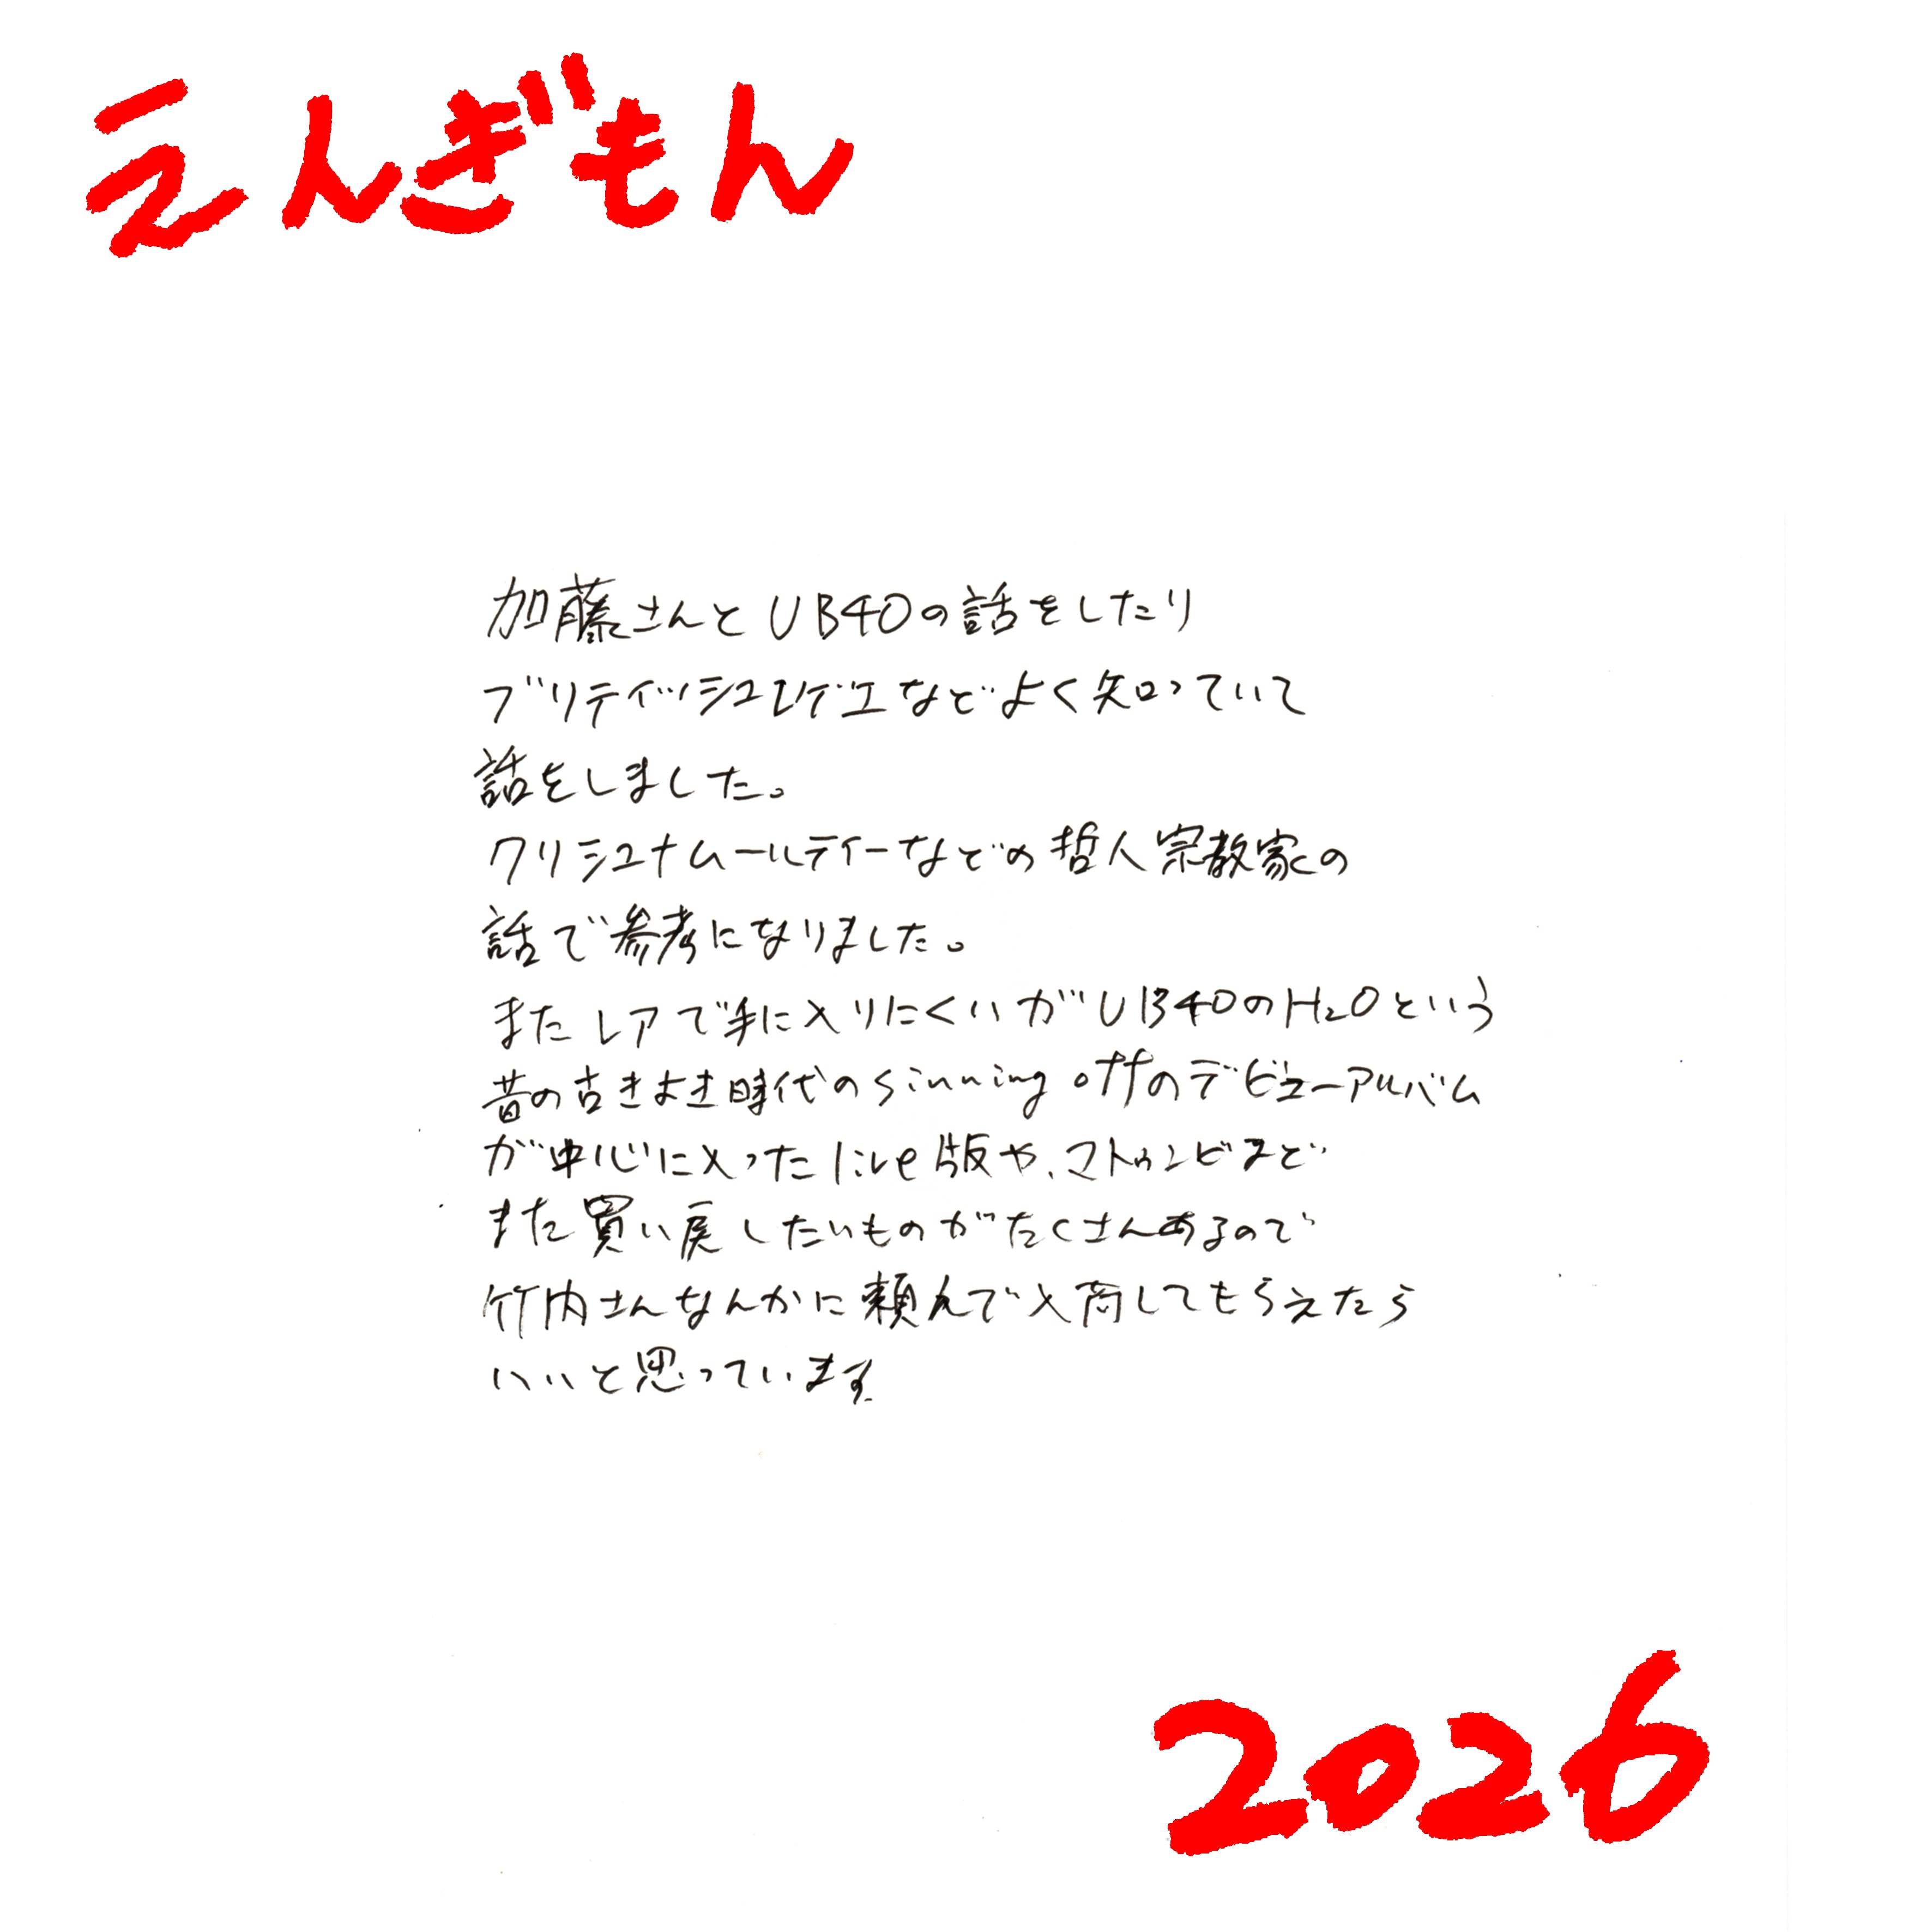 えんぎもん
加藤さんとUB40の話をしたり
ブリティッシュレゲエなどよく知っていて
話をしました。
クリシュナムールティーなどの哲人宗教家の
話で参考になりました。
またレアで手に入りにくいがUB40のH2Oという
昔の古きよき時代のsinning offのデビューアルバム
が中心に入ったlive版や、マトゥンビまで
また買い戻したいものがたくさんあるので
竹内さんなんかに頼んで入荷してもらえたら
いいと思っています
2026